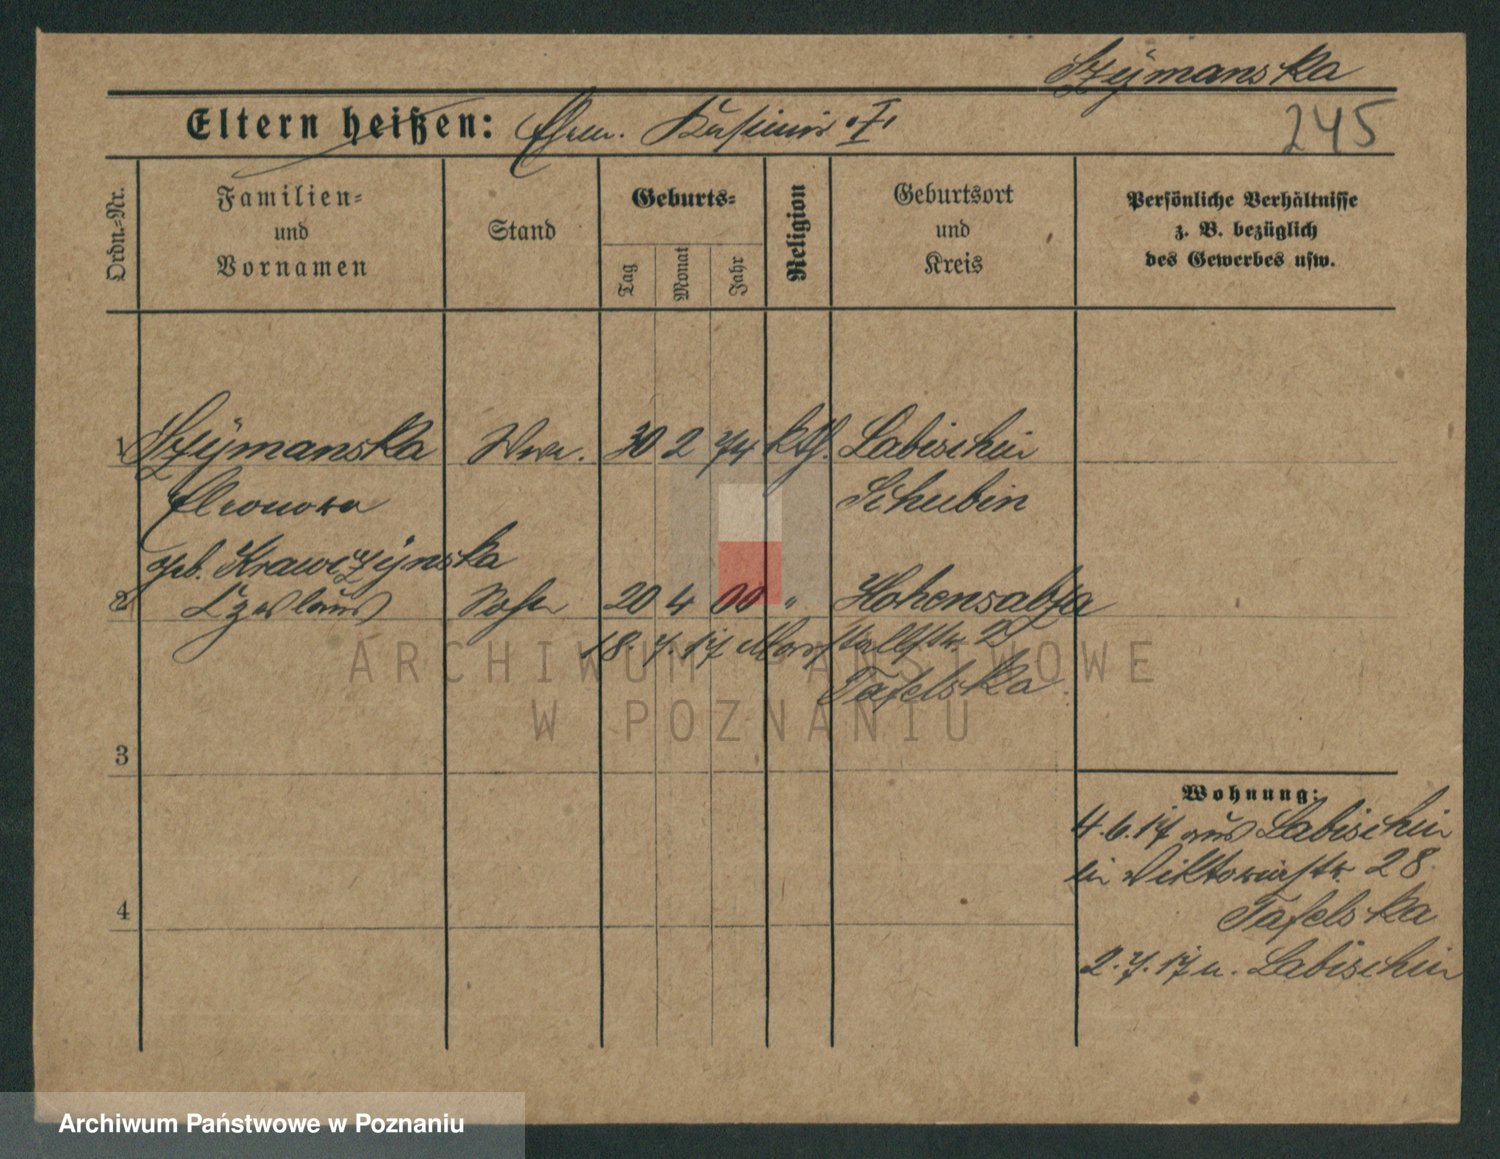 Szymanska
Eltern heißen: Ehem. Kasimir
245
Ordn.-Nr.
Familien-
und
Vornamen
Stand
Geburts-
Tag
Monat
Jahr
Religion
Geburtsort
und
Kreis
Persönliche Verhältnisse
z. B. bezüglich
des Gewerbes usw.
1 Szymanska Wwe. 30 2 74 kth. Labischin
Eleonora Schubin
geb. Krawczynska
2 Czeslaus Sohn 20 4 00 " Hohensalza
18.7.17 Marstallstr. 2
Tafelska
3
4
Wohnung:
4.6.17 aus Labischin
in Viktoriastr. 28
Tafelska
2.7.17 n. Labischin
ARCHIWUM PAŃSTWOWE
W POZNANIU
Archiwum Państwowe w Poznaniu